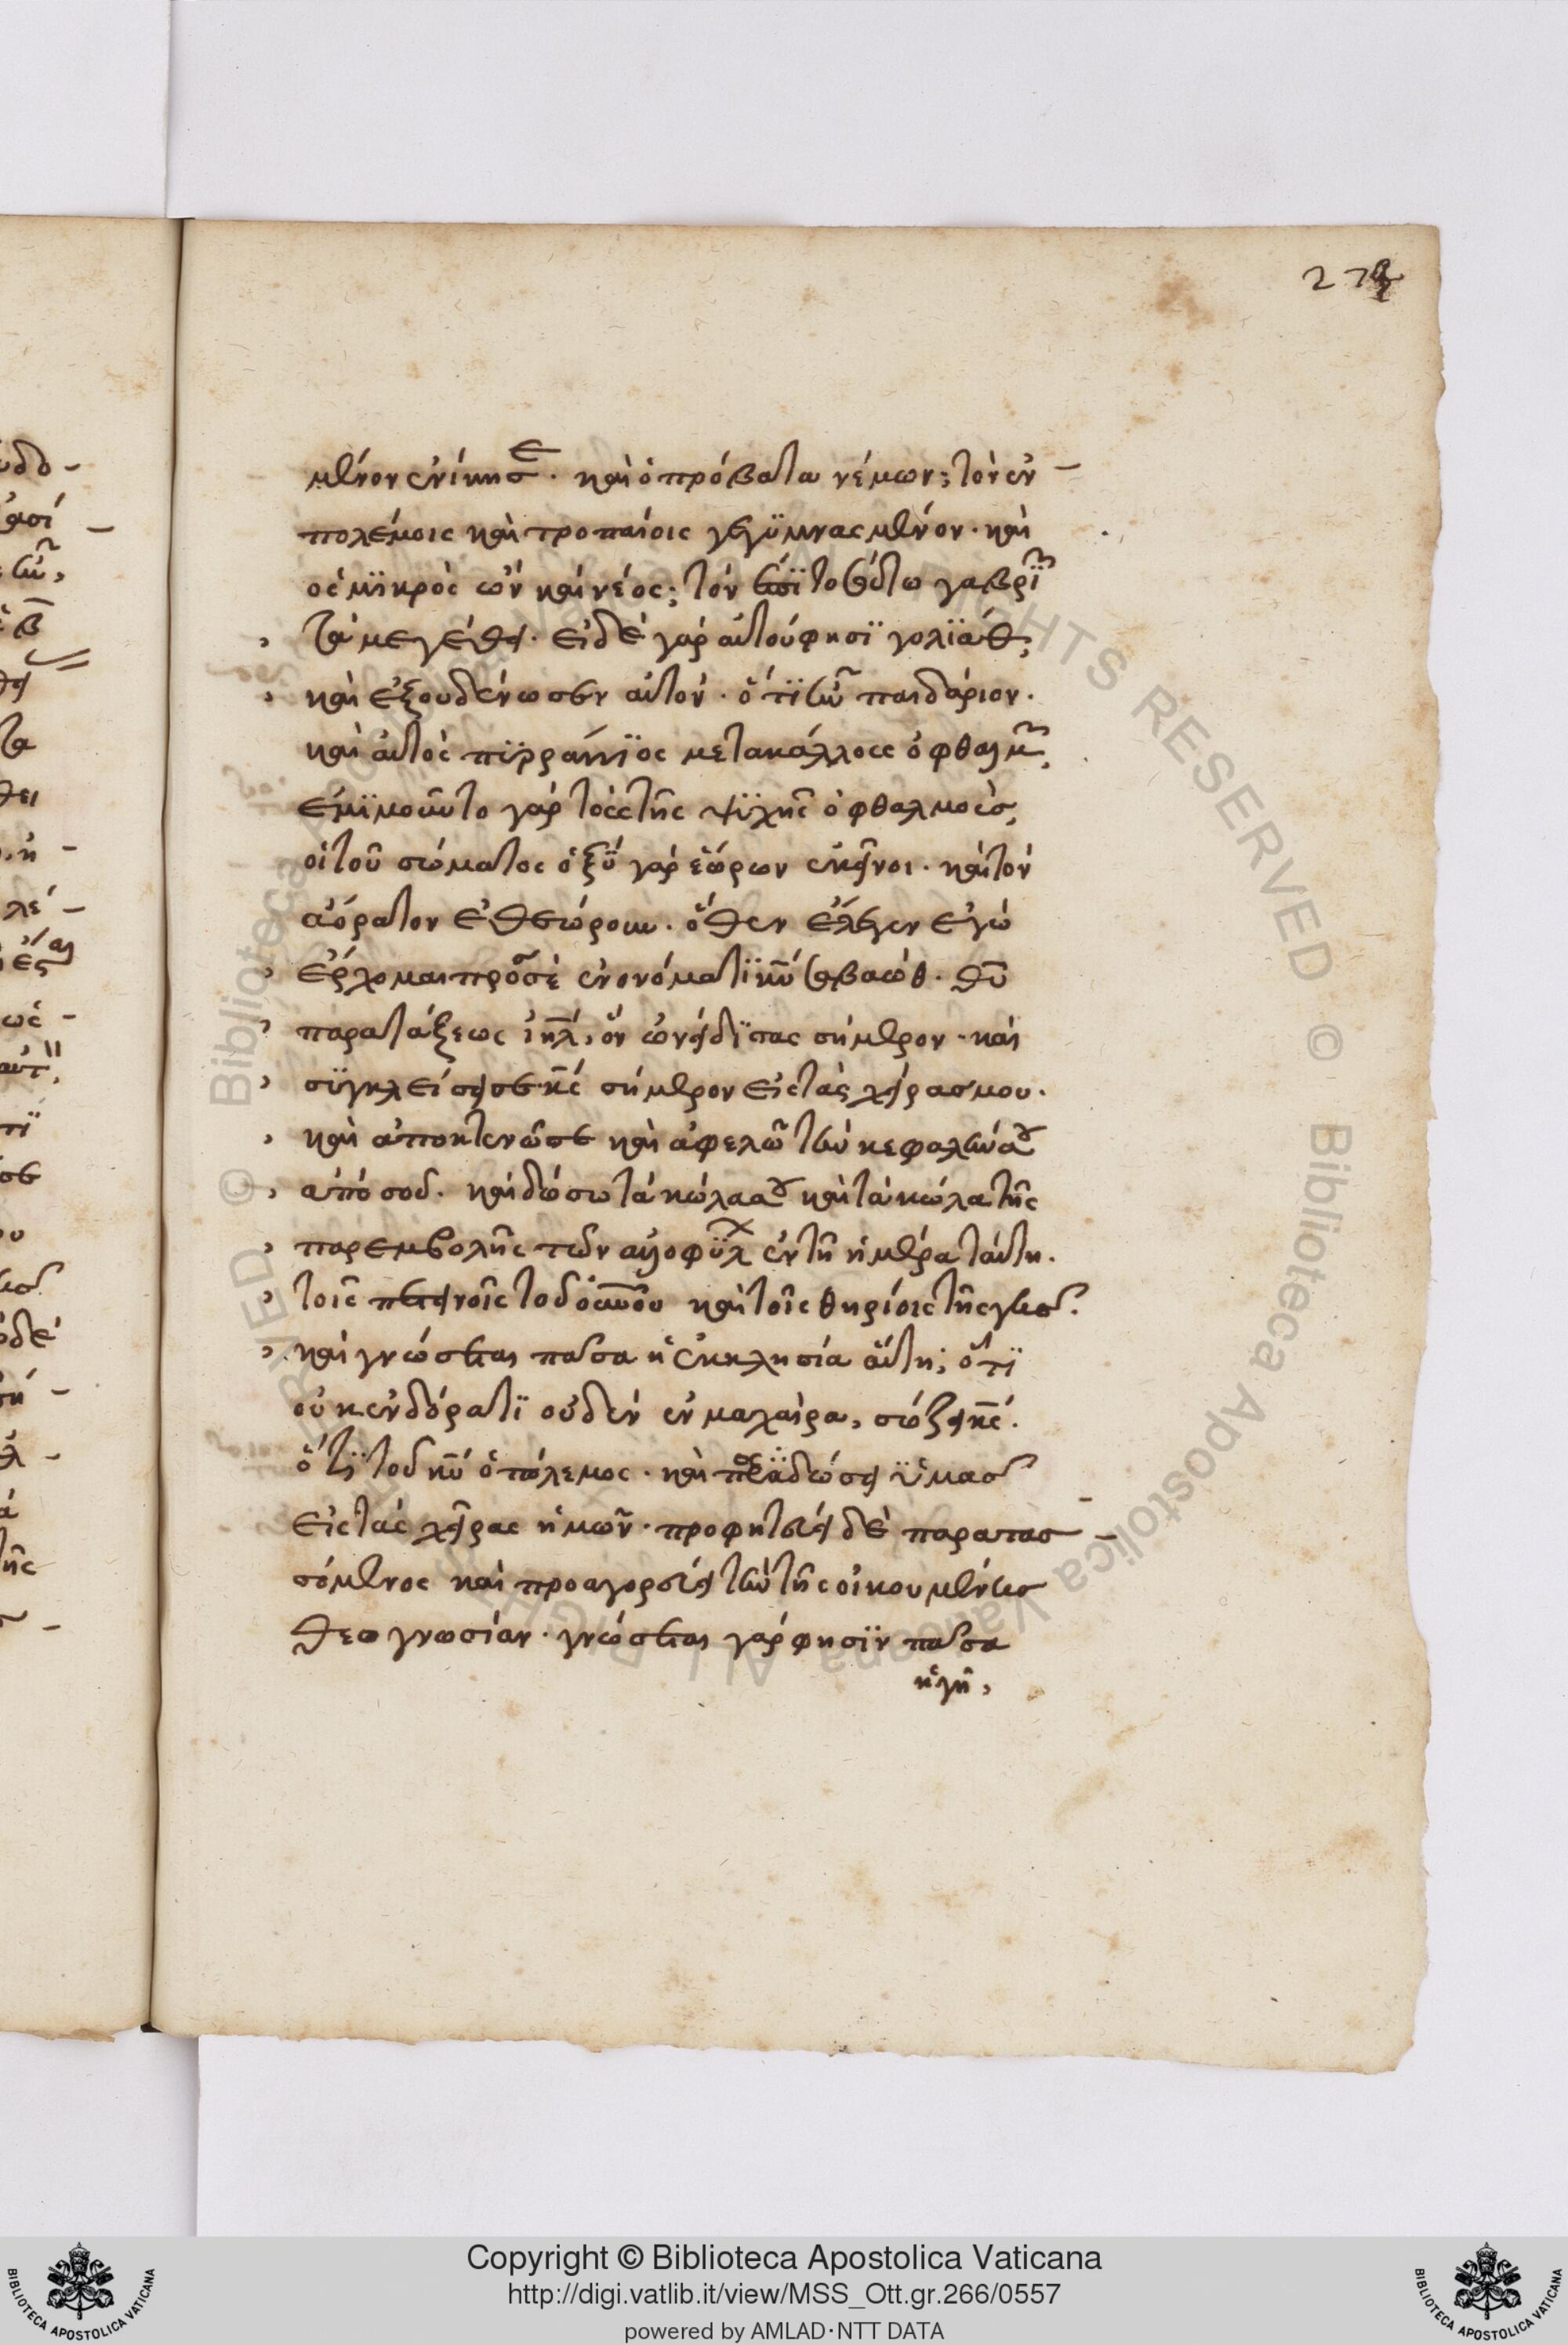 278
μένον ἐνίκησε. καὶ ὁ πρόβατα νέμων; τὸν ἐν
πολέμοις καὶ τροπαίοις γεγϋμνασμένον. καὶ
ὁ σμϊκρὸς ὢν καὶ νέος; τὸν ἐπῒ τοσούτω γαβρϊῶν
τῶ μεγέθει. εἶδε γὰρ αὐτού φησϊ γολϊὰθ,
καὶ ἐξουδένωσεν αὐτόν. ὅτϊ ἦν παιδάριον.
καὶ αὐτὸς πϋρράκϊος μετακάλλους ὀφθαλμῶν,
ἐμϊμοῦντο γὰρ τοὺς τῆς ψϋχῆς ὀφθαλμοὺς,
οἱ τοῦ σώματος ὀξϋ γὰρ ἑώρων ἐκεῖνοι. καὶ τὸν
ἀόρατον ἐθεώρουν. ὅθεν ἔλεγεν ἐγὼ
ἔρχομαι πρὸς σὲ ἐν ὀνόματϊ κῡ σαβαὼθ. θῡ
παρατάξεως ἰηλ̄, ὃν ὠνείδϊσας σήμερον. καὶ
σϋγκλείσει σε κ̄ς σήμερον εἰς τὰς χεῖρας μου.
καὶ ἀποκτενῶ σε καὶ ἀφελῶ τὴν κεφαλήν σου
ἀπὸ σοῦ. καὶ δώσω τὰ κῶλα σου καὶ τὰ κῶλα τῆς
παρεμβολῆς τῶν ἀλλοφϋλ ἐν τῇ ἡμέρα ταύτη.
τοῖς πετεινοῖς τοῦ οὐνοῦ καὶ τοῖς θηρίοις τῆς γῆς.
καὶ γνώσεται πᾶσα ἡ ἐκκλησία αὕτη; ὅτϊ
οὐκ ἐν δόρατϊ οὐδὲν ἐν μαχαίρα, σώζει κ̄ς.
ὅτϊ τοῦ κῡ ὁ πόλεμος. καὶ παραδώσει ϋμας
εἰς τὰς χεῖρας ἡμῶν. προφητεύει δὲ παρατασ
σόμενος καὶ προαγορεύει τὴν τῆς οἰκουμένης
θεογνωσίαν. γνώσεται γάρ φησϊν πᾶσα
ἡ γῆ,
Copyright © Biblioteca Apostolica Vaticana
http://digi.vatlib.it/view/MSS_Ott.gr.266/0557
powered by AMLAD·NTT DATA